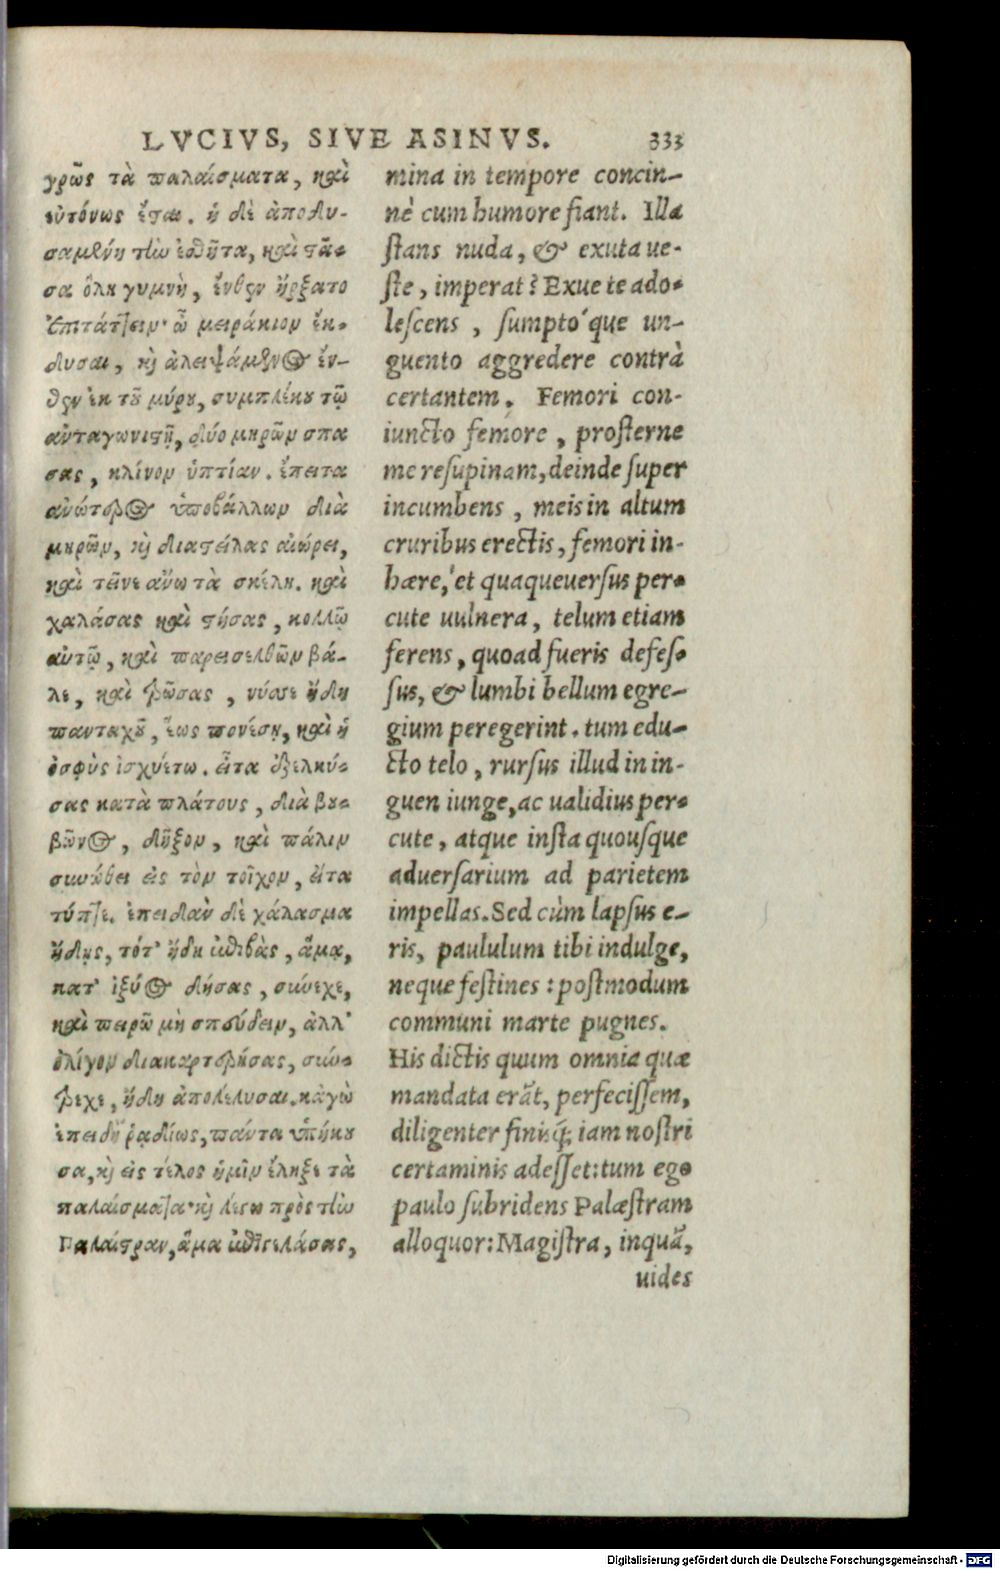 LVCIVS, SIVE ASINVS. 333
γρῶς τὰ παλαίσματα, καὶ
εὐτόνως ἔσται. ἡ δὲ ἀποδυ-
σαμένη τὴν ἐσθῆτα, καὶ στᾶ-
σα ὅλη γυμνὴ, ἔνθεν ἤρξατο
ἐπιτάττειν· ὦ μειράκιον ἔκ-
δυσαι, καὶ ἀλειψάμενος ἔν-
θεν ἐκ τοῦ μύρου, συμπλέκου τῷ
ἀνταγωνιστῇ, δύο μηρῶν σπα
σας, κλῖνον ὑπτίαν. ἔπειτα
ἀνώτερος ὑποβάλλων διὰ
μηρῶν, καὶ διαστείλας αἰώρει,
καὶ τεῖνε ἄνω τὰ σκέλη. καὶ
χαλάσας καὶ στήσας, κολλῶ
αὐτῷ, καὶ παρεισελθὼν βά-
λε, καὶ πρώσας, νύσσε ἤδη
πανταχοῦ, ἕως πονέσῃ, καὶ ἡ
ὀσφὺς ἰσχυέτω. εἶτα ἐξελκύ-
σας κατὰ πλάτους, διὰ βου-
βῶνος, δῆξον, καὶ πάλιν
συνώθει εἰς τὸν τοῖχον, εἶτα
τύπτε. ἐπειδὰν δὲ χάλασμα
ἴδῃς, τότ' ἤδη ἐπιβὰς, ἅμα,
κατ' ἰξύος δήσας, σύνεχε,
καὶ πειρῶ μὴ σπεύδειν, ἀλλ'
ὀλίγον διακαρτερήσας, σύν-
τρεχε, ἤδη ἀπολέλυσαι. κἀγὼ
ἐπειδὴ ῥᾳδίως, πάντα ὑπήκου
σα, καὶ εἰς τέλος ἡμῖν ἔληξε τὰ
παλαίσματα· καὶ λέγω πρὸς τὴν
Παλαίστραν, ἅμα ἐπιγελάσας,
mina in tempore concin-
nè cum humore fiant. Illa
stans nuda, & exuta ue-
ste, imperat? Exue te ado-
lescens, sumptóque un-
guento aggredere contrà
certantem. Femori con-
iuncto femore, prosterne
me resupinam, deinde super
incumbens, meis in altum
cruribus erectis, femori in-
hære, et quaqueuersus per-
cute uulnera, telum etiam
ferens, quoad fueris defes-
sus, & lumbi bellum egre-
gium peregerint. tum edu-
cto telo, rursus illud in in-
guen iunge, ac ualidius per-
cute, atque insta quousque
aduersarium ad parietem
impellas. Sed cùm lapsus e-
ris, paululum tibi indulge,
neque festines: postmodum
communi marte pugnes.
His dictis quum omnia quæ
mandata erāt, perfecissem,
diligenter finisq́; iam nostri
certaminis adesset: tum ego
paulo subridens Palæstram
alloquor: Magistra, inquā,
uides
Digitalisierung gefördert durch die Deutsche Forschungsgemeinschaft - DFG